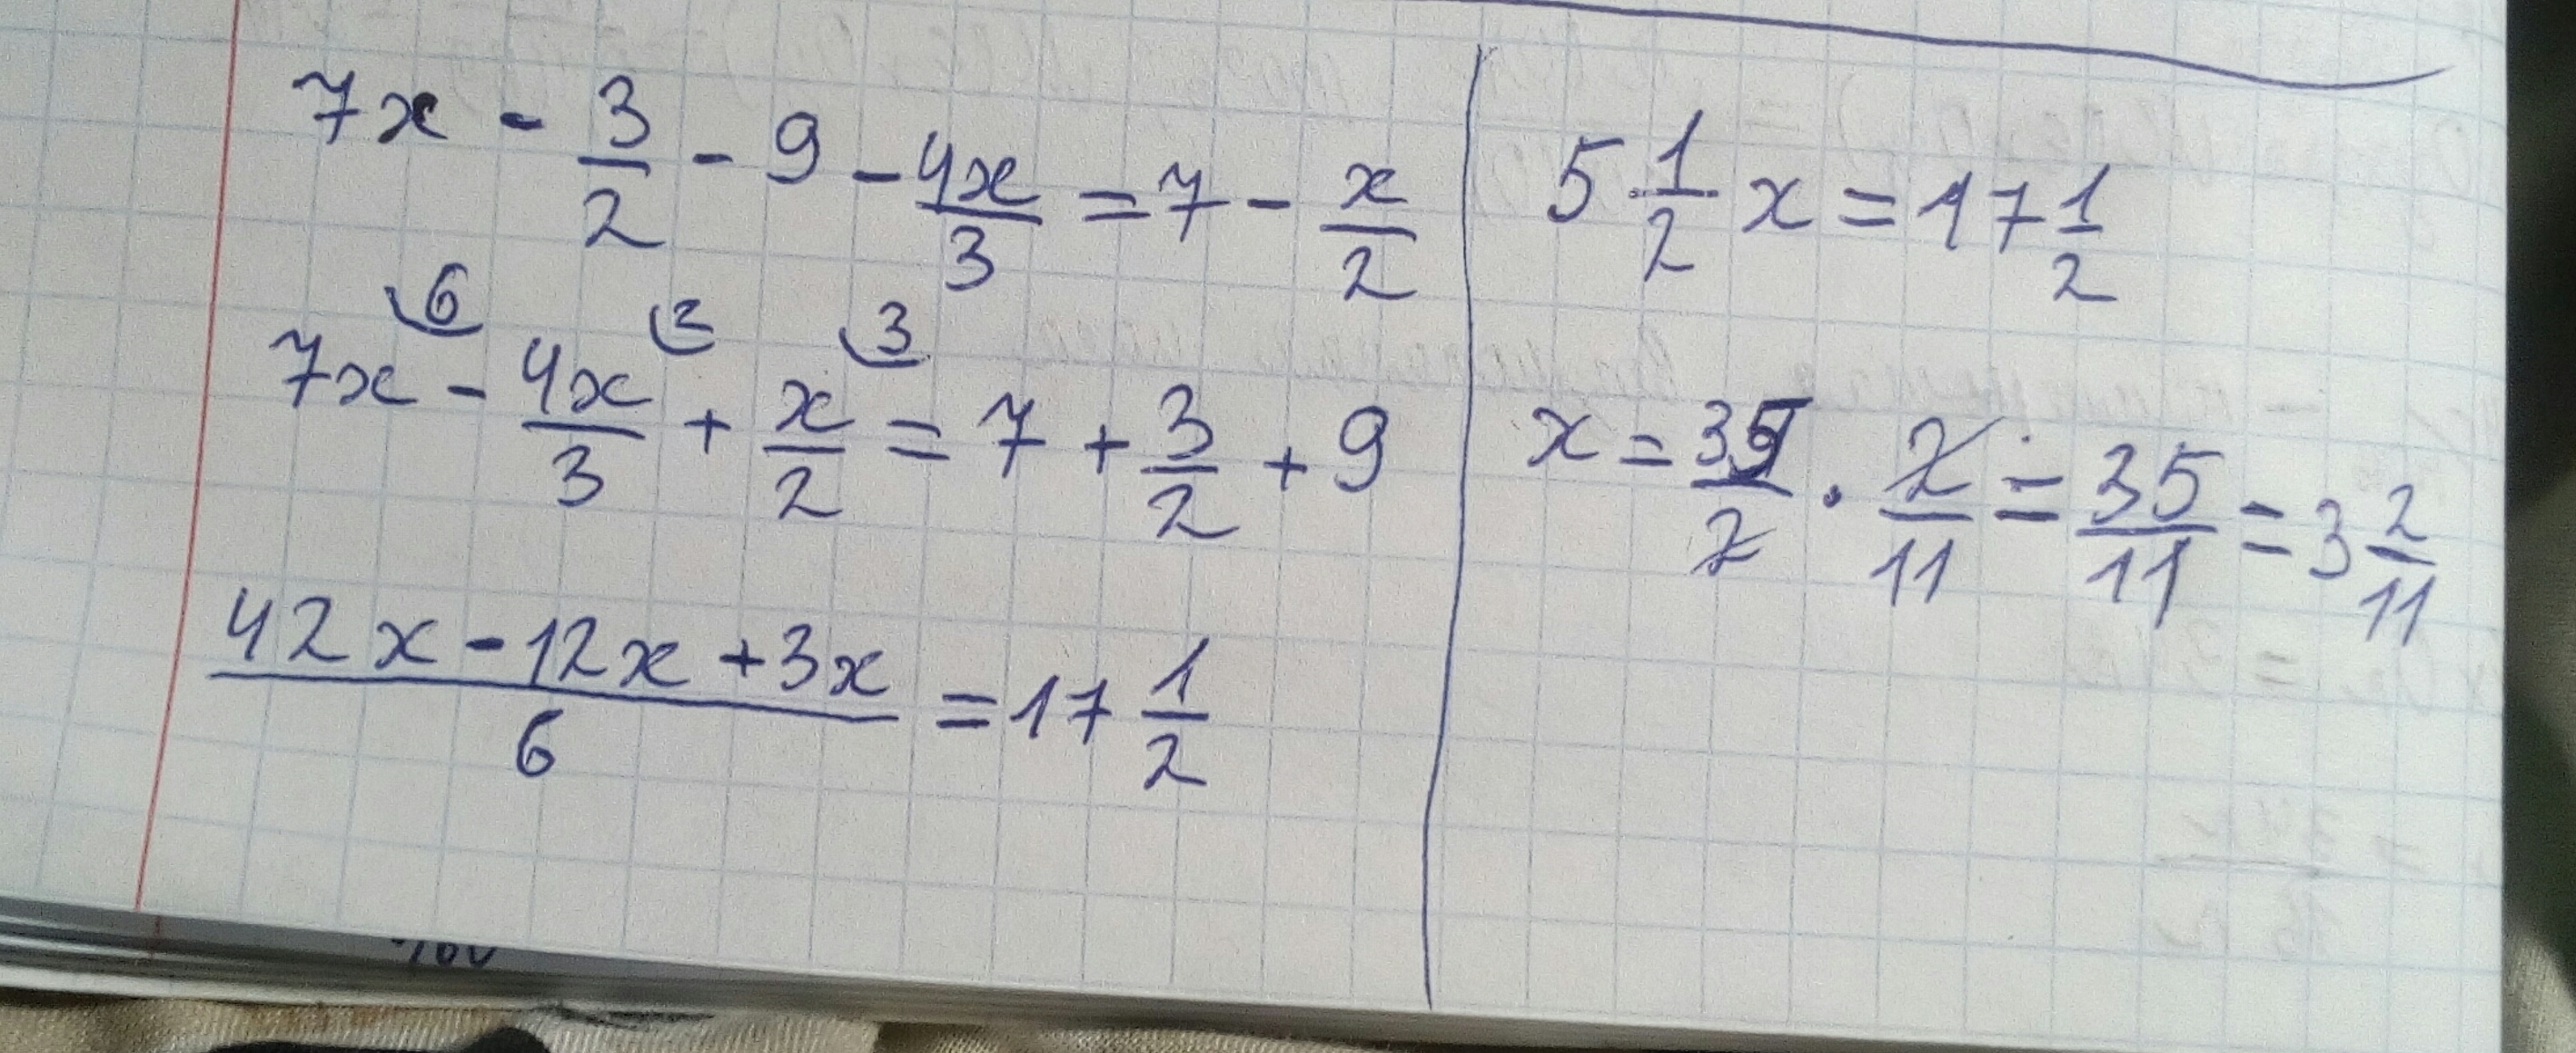 7x - 3/2 - 9 - 4x/3 = 7 - x/2
7x - 4x/3 + x/2 = 7 + 3/2 + 9
6 2 3
(42x - 12x + 3x)/6 = 17 1/2
5 1/2 x = 17 1/2
x = 35/2 · 2/11 = 35/11 = 3 2/11